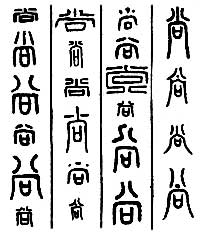 尚尚尚尚
尚尚尚尚尚
尚尚尚尚尚尚
尚尚尚尚尚尚